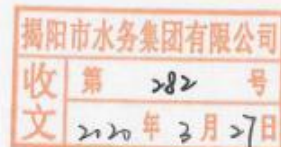 揭阳市水务集团有限公司
收文
第 282 号
2020 年 3 月 27 日